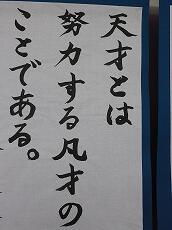 天才とは
努力する凡才の
ことである。